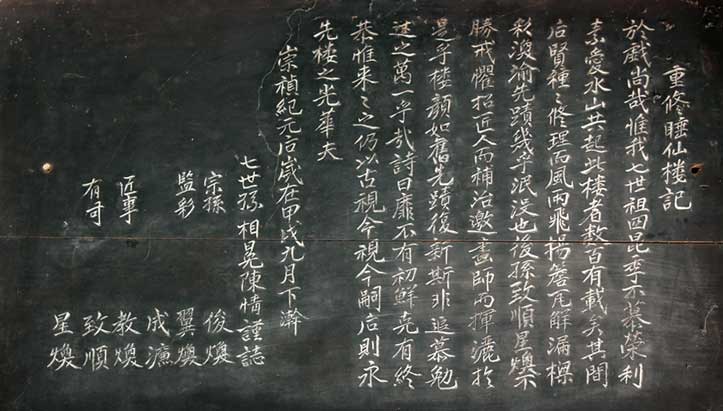 重修睡仙楼記
於戲尚哉惟我七世祖四昆季不慕榮利
素愛水山共起此楼者数百有載矣其間
后賢種〻修理而風雨飛揚簷瓦觧漏樑
彩渙渝先蹟幾乎泯没也後孫致順星煥不
勝戒懼招匠人而補治邀畫師而揮灑於
是乎楼顔如舊先蹟復新斯非追慕勉
述之萬一乎哉詩曰靡不有初鮮克有終
恭惟来〻之仍以古視今視今嗣后則永
先楼之光華夫
崇禎紀元后歲在甲戌九月下澣
七世孫相晃陳情謹誌
宗孫 俊煥
監彩 翼煥
成濂
匠事 教煥
有司 致順
星煥